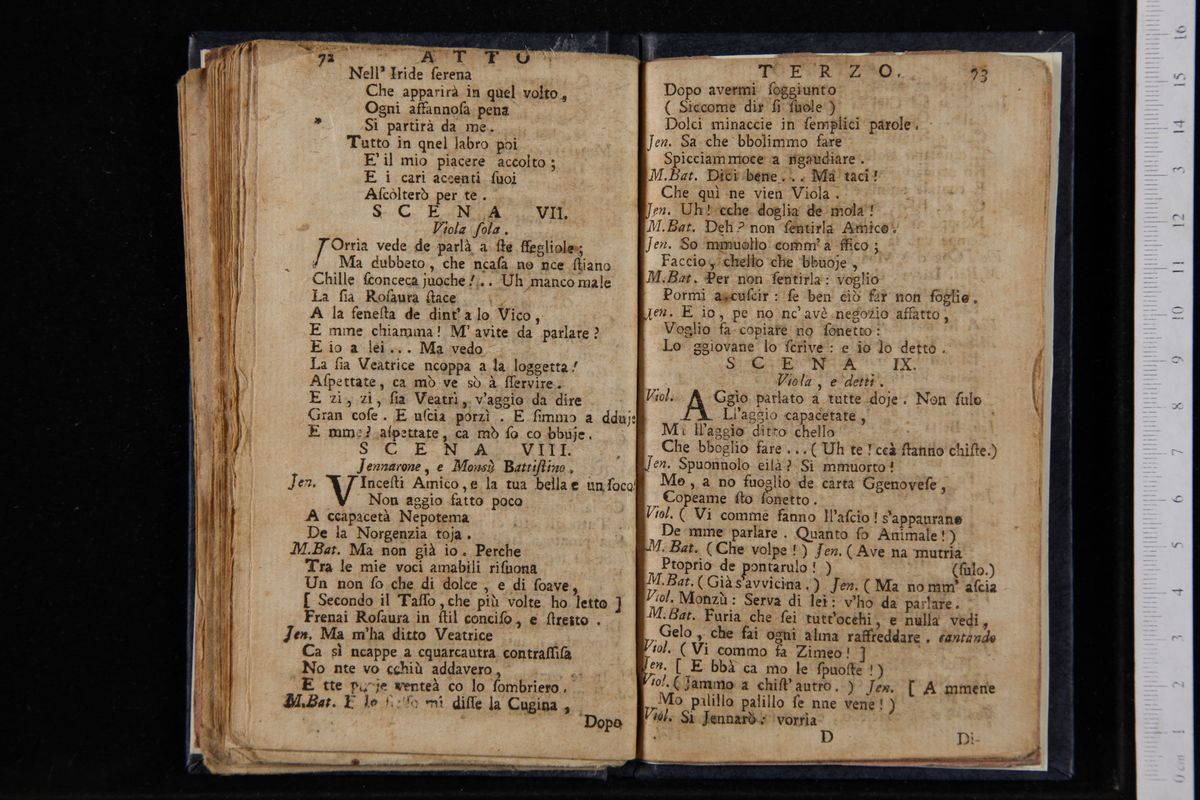 72 ATTO
Nell' Iride ſerena
Che apparirà in quel volto,
Ogni affannoſa pena
* Si partirà da me.
Tutto in qnel labro poi
E' il mio piacere accolto;
E i cari accenti ſuoi
Aſcolterò per te.
SCENA VII.
Viola ſola.
VOrria vede de parlà a ſte ffegliole;
Ma dubbeto, che ncaſa no nce ſtiano
Chille ſconceca juoche!.. Uh manco male
La ſia Roſaura ſtace
A la feneſta de dint' a lo Vico,
E mme chiamma! M' avite da parlare?
E io a lei... Ma vedo
La ſia Veatrice ncoppa a la loggetta!
Aſpettate, ca mò ve sò a ſſervire.
E zi, zi, ſia Veatrì, v'aggio da dire
Gran coſe. E uſcia porzì. E ſimmo a dduje
E mme? aſpettate, ca mò ſo co bbuje.
SCENA VIII.
Jennarone, e Monsù Battiſtino.
Jen. VInceſti Amico, e la tua bella e un ſoco
Non aggio fatto poco
A ccapacetà Nepotema
De la Norgenzia toja.
M.Bat. Ma non già io. Perche
Tra le mie voci amabili riſuona
Un non ſo che di dolce, e di ſoave,
[ Secondo il Taſſo, che più volte ho letto ]
Frenai Roſaura in ſtil conciſo, e ſtretto.
Jen. Ma m'ha ditto Veatrice
Ca sì ncappe a cquarcautra contraſſiſa
No nte vo cchiù addavero,
E tte venteà co lo ſombriero.
M.Bat. E lo mi diſſe la Cugina,
Dopo
TERZO. 73
Dopo avermi ſoggiunto
( Siccome dir ſi ſuole )
Dolci minaccie in ſemplici parole.
Jen. Sa che bbolimmo fare
Spicciammoce a ngaudiare.
M.Bat. Dici bene... Ma taci!
Che quì ne vien Viola.
Jen. Uh! cche doglia de mola!
M.Bat. Deh? non ſentirla Amico.
Jen. So mmuollo comm' a ffico;
Faccio, chello che bbuoje,
M.Bat. Per non ſentirla: voglio
Pormi a cuſcir: ſe ben ciò far non ſoglio.
Jen. E io, pe no nc' avè negozio affatto,
Voglio fa copiare no ſonetto:
Lo ggiovane lo ſcrive: e io lo detto.
SCENA IX.
Viola, e detti.
Viol. AGgio parlato a tutte doje. Non ſulo
Ll'aggio capacetate,
Mi ll'aggio ditto chello
Che bboglio fare...( Uh te! ccà ſtanno chiſte.)
Jen. Spuonnolo eilà? Si mmuorto!
Mo, a no fuoglio de carta Ggenoveſe,
Copeame ſto ſonetto.
Viol. ( Vi comme fanno ll'aſcio! s'appaurano
De mme parlare. Quanto ſo Animale!)
M. Bat. (Che volpe!) Jen. (Ave na mutria
Ptoprio de pontarulo! ) (ſulo.)
M.Bat. (Già s'avvicina.) Jen. ( Ma no mm' aſcia
Viol. Monzù: Serva di lei: v'ho da parlare.
M.Bat. Furia che ſei tutt'occhi, e nulla vedi,
Gelo, che fai ogni alma raffreddare. cantando
Viol. ( Vi commo fa Zimeo! ]
Jen. [ E bbà ca mo le ſpuoſte!)
Viol. ( Jammo a chiſt' autro. ) Jen. [ A mmene
Mo palillo palillo ſe nne vene!)
Viol. Si Jennarò: vorria
D Di-